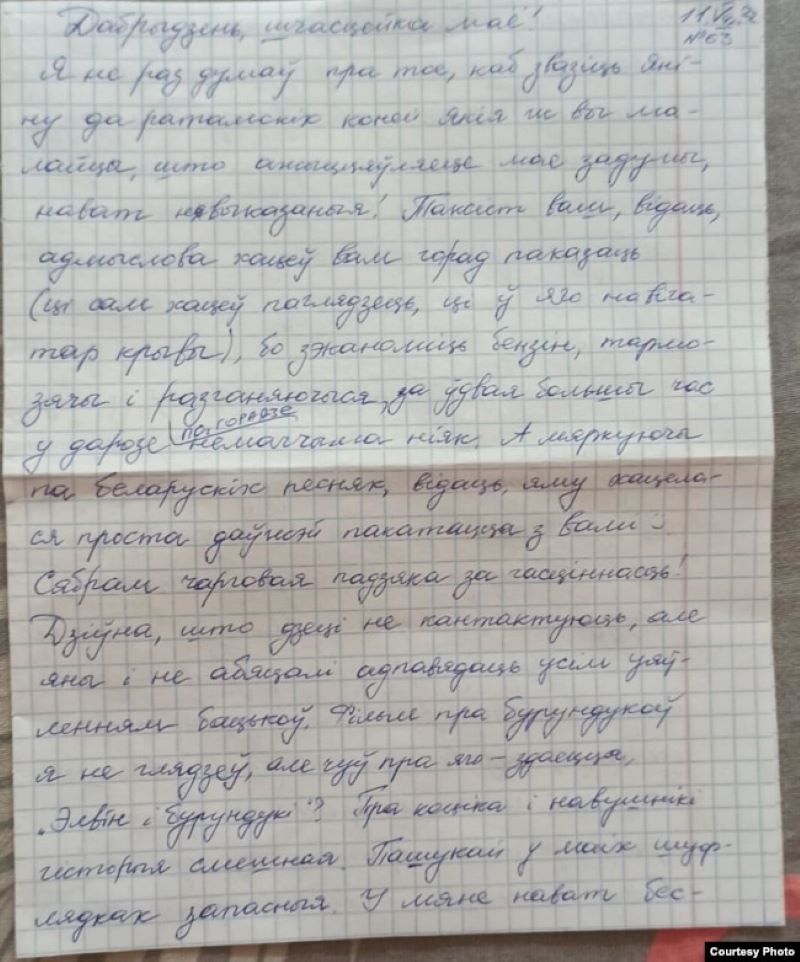 Дабрыдзень, шчасцейка маё!
11.VII.22
№63
Я не раз думаў пра тое, каб звазіць Яні-
ну да ратамскіх коней. Якія ж вы ма-
лайцы, што ажыццяўляеце мае задумы,
нават нявыказаныя! Таксіст ваш, відаць,
адмыслова хацеў вам горад паказаць
(ці сам хацеў паглядзець, ці ў яго навіга-
тар крывы), бо зэканоміць бензін, тармо-
зячы і разганяючыся, за ўдвая большы час
у дарозе па горадзе немагчыма ніяк. А мяркуючы
па беларускіх песнях, відаць, яму хацела-
ся проста даўжэй пакатацца з вамі :)
Сябрам чарговая падзяка за гасціннасць!
Дзіўна, што дзеці не кантактуюць, але
яны і не абяцалі адпавядаць усім уяў-
ленням бацькоў. Фільм пра бурундукоў
я не глядзеў, але чуў пра яго – здаецца,
„Элвін і бурундукі"? Пра коціка і навушнікі
гісторыя смешная. Пашукай у маіх шуф-
лядках запасныя. У мяне нават бес-
Courtesy Photo